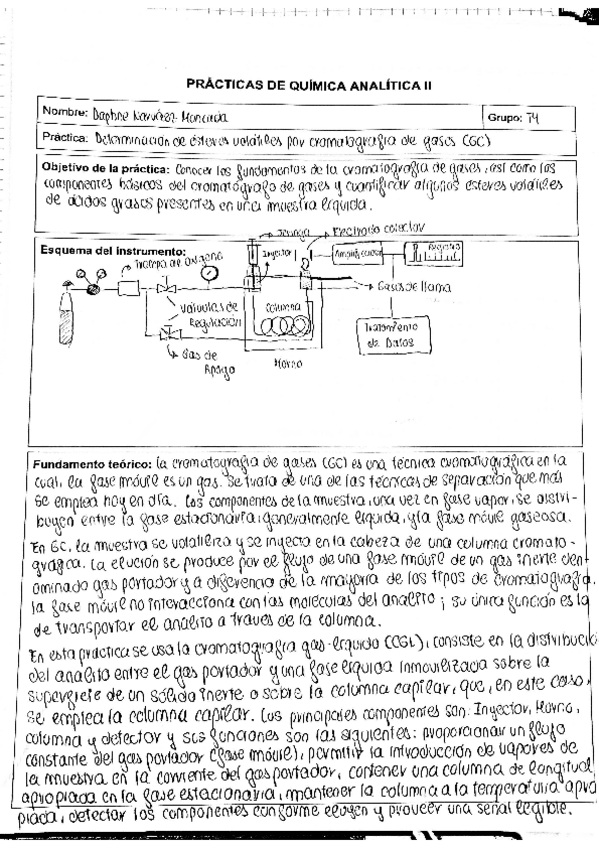 PRÁCTICAS DE QUÍMICA ANALÍTICA II
Nombre: Daphne Narváez Moncada
Grupo: T4
Práctica: Determinación de ésteres volátiles por cromatografía de gases (GC)
Objetivo de la práctica: Conocer los fundamentos de la cromatografía de gases, así como los
componentes básicos del cromatógrafo de gases y cuantificar algunos ésteres volátiles
de ácidos grasos presentes en una muestra líquida.
Esquema del instrumento:
Jeringa
Electrodo colector
Trampa de oxígeno
Inyector
Amplificador
Registro
Gases de llama
Válvulas de
Regulación
Columna
Tratamiento
de Datos
Gas de
Apoyo
Horno
Fundamento teórico: la cromatografía de gases (GC) es una técnica cromatográfica en la
cual, la fase móvil es un gas. Se trata de una de las técnicas de separación que más
se emplea hoy en día. Los componentes de la muestra, una vez en fase vapor, se distri-
buyen entre la fase estacionaria, generalmente líquida, y la fase móvil gaseosa.
En GC, la muestra se volatiliza y se inyecta en la cabeza de una columna cromato-
gráfica. La elución se produce por el flujo de una fase móvil de un gas inerte den-
ominado gas portador y a diferencia de la mayoría de los tipos de cromatografía,
la fase móvil no interacciona con las moléculas del analito; su única función es la
de transportar el analito a través de la columna.
En esta práctica se usa la cromatografía gas-líquido (CGL), consiste en la distribució
del analito entre el gas portador y una fase líquida inmovilizada sobre la
superficie de un sólido inerte o sobre la columna capilar, que, en este caso,
se emplea la columna capilar. Los principales componentes son: Inyector, Horno,
columna y detector y sus funciones son las siguientes: proporcionar un flujo
constante del gas portador (fase móvil), permitir la introducción de vapores de
la muestra en la corriente del gas portador, contener una columna de longitud
apropiada en la fase estacionaria, mantener la columna a la temperatura apro
piada, detectar los componentes conforme eluyen y proveer una señal legible.